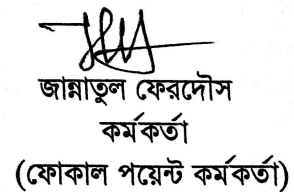 জান্নাতুল ফেরদৌস
কর্মকর্তা
(ফোকাল পয়েন্ট কর্মকর্তা)